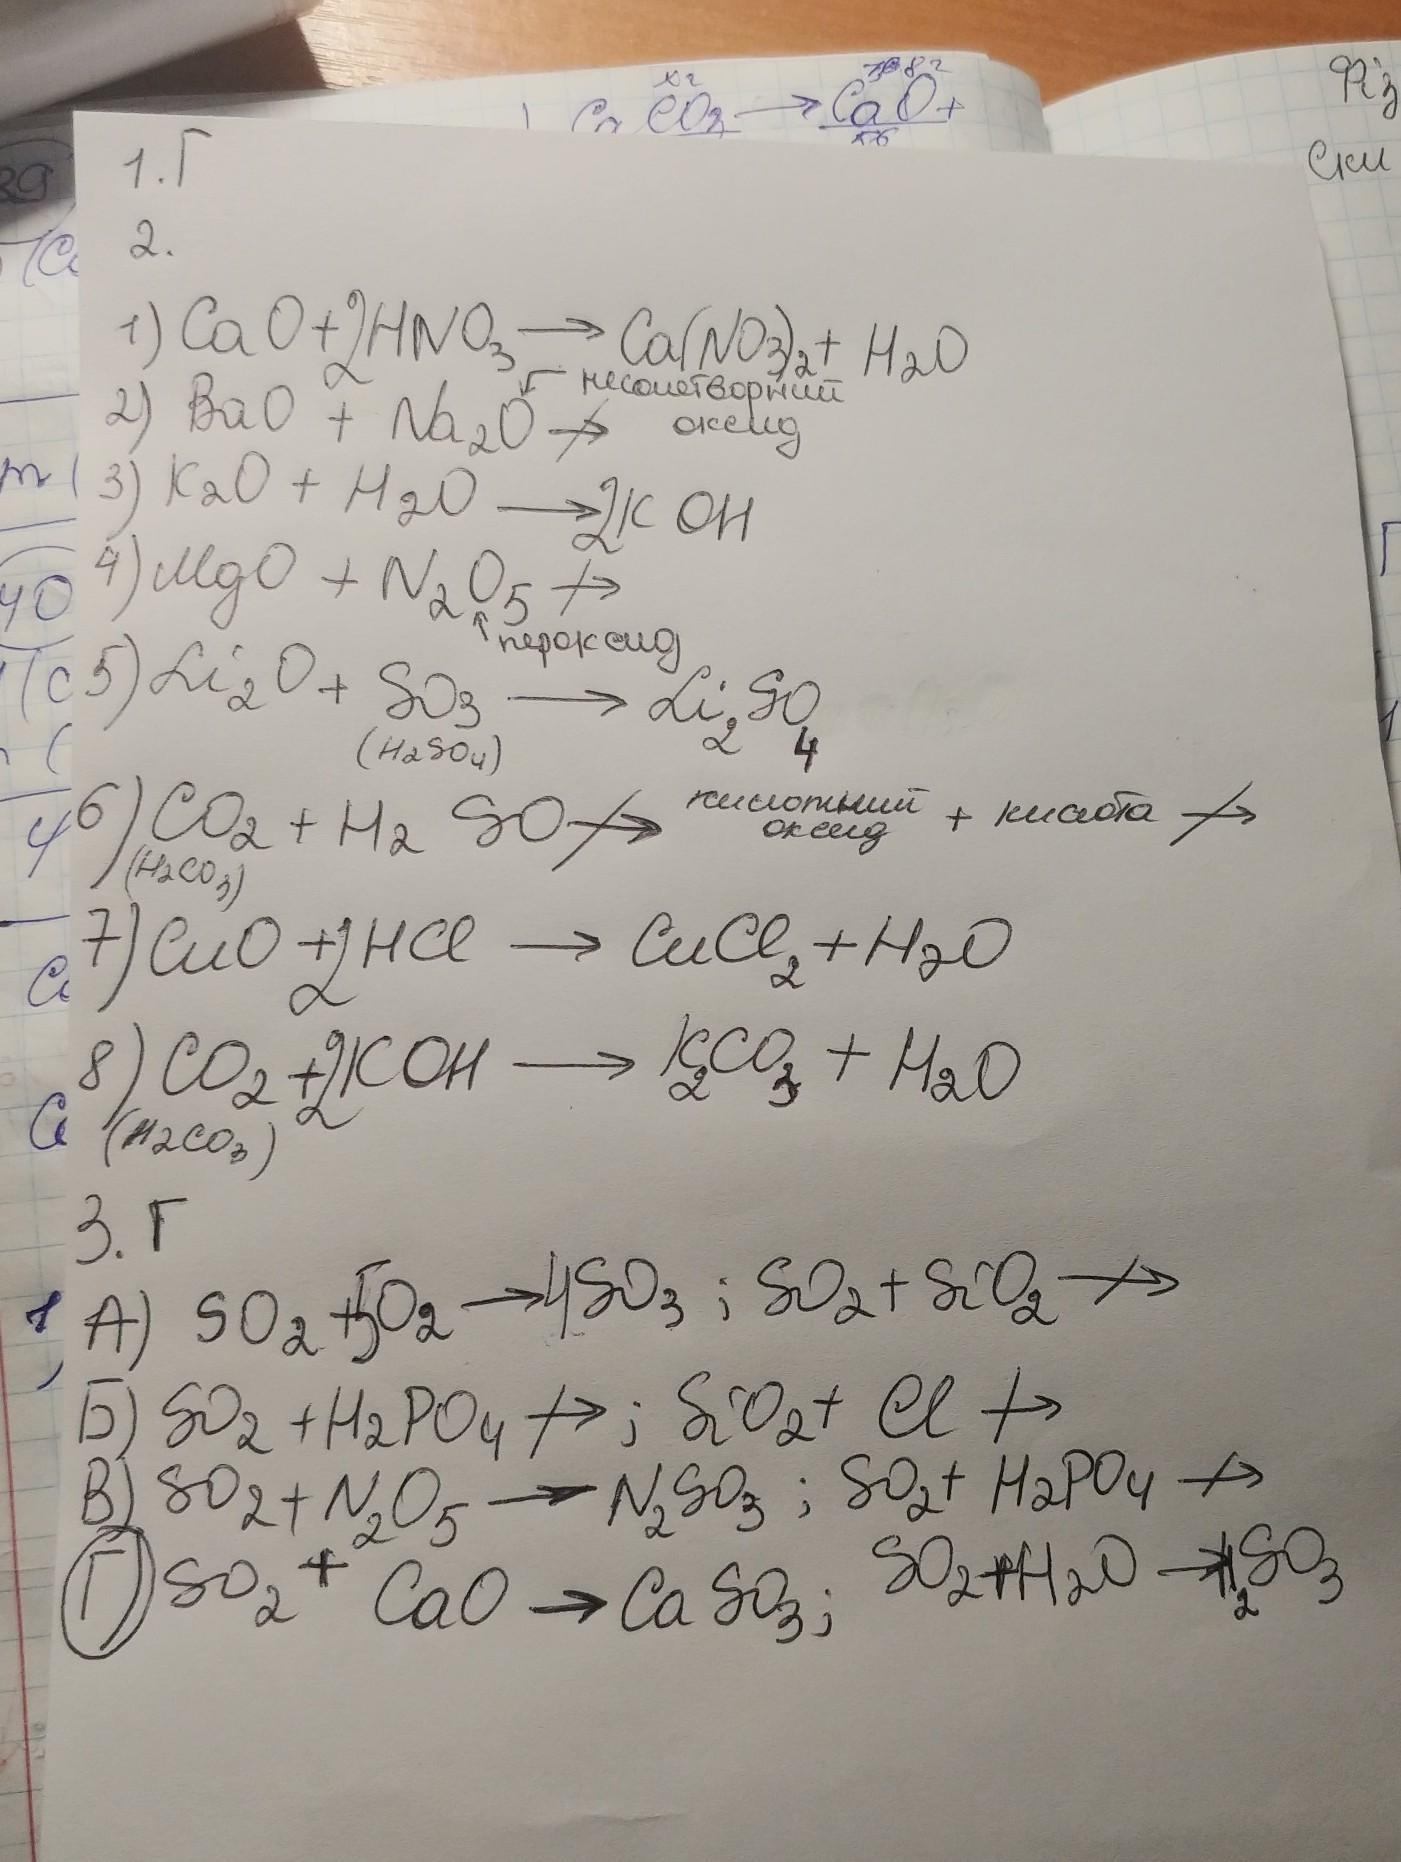 CaCO3 → CaO +
56
Фіз
Ски
39
40
1. Г
2.
1) CaO + 2HNO3 → Ca(NO3)2 + H2O
2) BaO + Na2O ↛ несолетворний оксид
3) K2O + H2O → 2KOH
4) MgO + N2O5 ↛
↑ пероксид
5) Li2O + SO3 → Li2SO4
(H2SO4)
6) CO2 + H2SO ↛ кислотний оксид + кислота ↛
(H2CO3)
7) CuO + 2HCl → CuCl2 + H2O
8) CO2 + 2KOH → K2CO3 + H2O
(H2CO3)
3. Г
А) SO2 + 5O2 → 4SO3 ; SO2 + SiO2 ↛
Б) SO2 + H2PO4 ↛ ; SiO2 + Cl ↛
В) SO2 + N2O5 → N2SO3 ; SO2 + H2PO4 ↛
Г) SO2 + CaO → CaSO3 ; SO2 + H2O → H2SO3